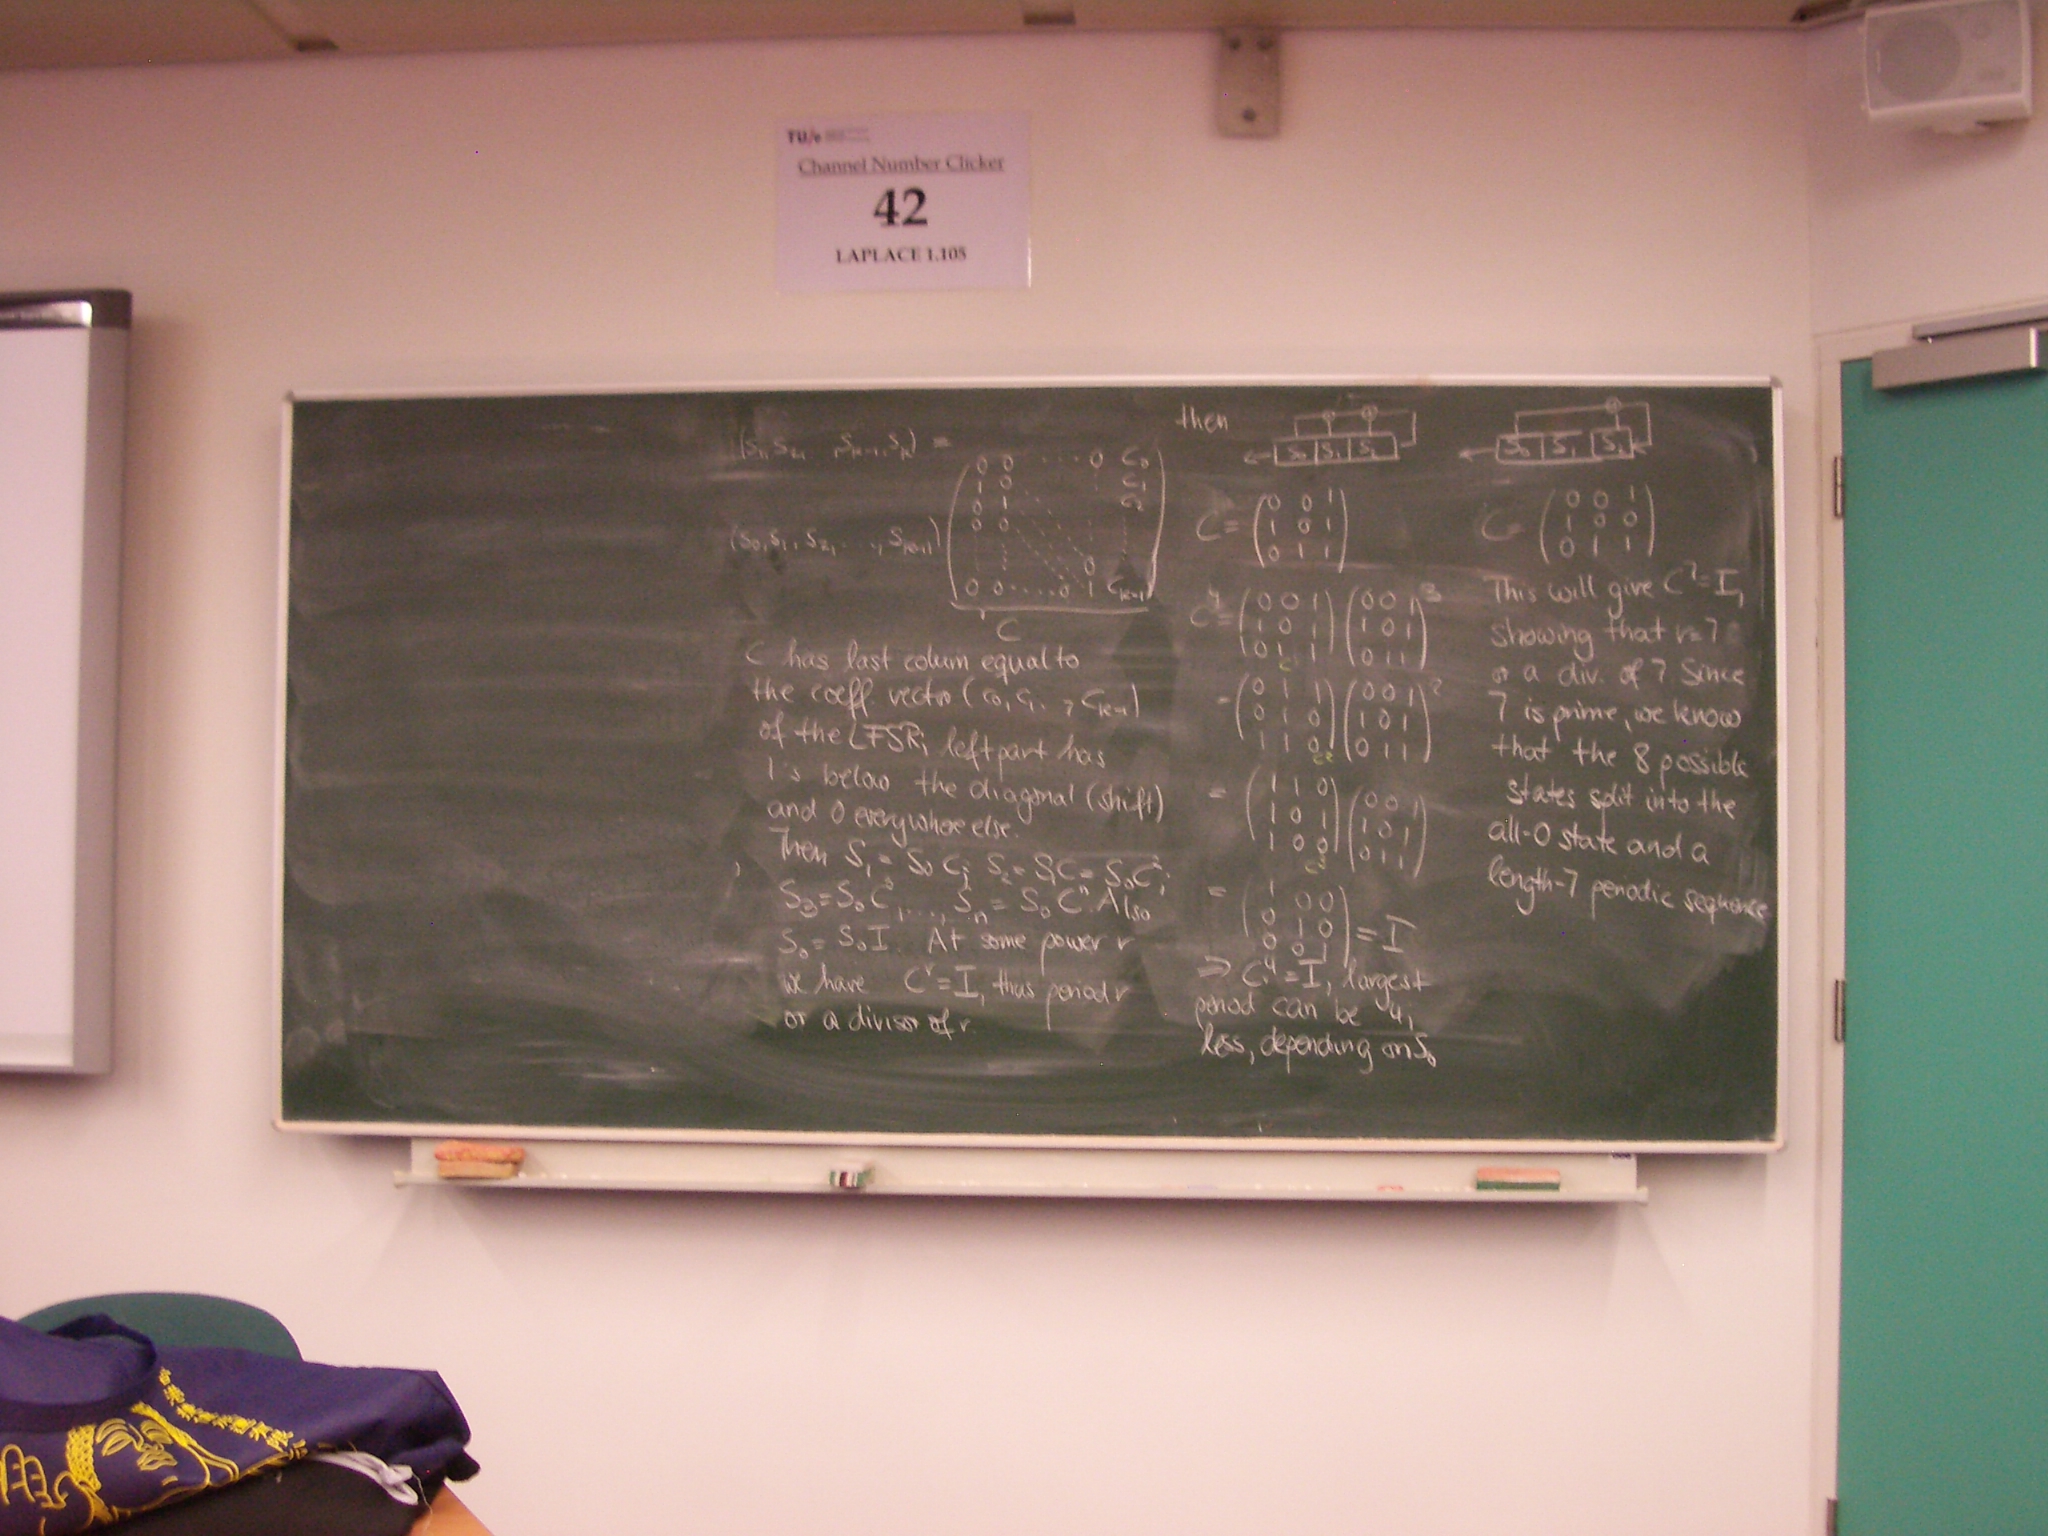 TU/e
Channel Number Clicker
42
LAPLACE 1.105
(S1, S2, , Sk-1, Sk) =
(S0, S1, S2, . . ., Sk-1)
0 0 . . . 0 C0
1 0 C1
0 1 C2
0 0
0
0 0 . . . . 0 1 Ck-1
C
C has last colum equal to
the coeff. vector (c0, c1, . , ck-1)
of the LFSR, left part has
1's below the diagonal (shift)
and 0 everywhere else.
Then S1 = S0 C; S2 = S1C = S0C²;
S3 = S0 C³, ..., Sn = S0 Cⁿ. Also
S0 = S0 I. At some power r
we have Cʳ = I, thus period r
or a divisor of r.
then
S0 S1 S2
C =
0 0 1
1 0 1
0 1 1
C⁴ =
0 0 1 0 0 1 3
1 0 1 1 0 1
0 1 1 0 1 1
C
=
0 1 1 0 0 1 2
0 1 0 1 0 1
1 1 0 0 1 1
C²
=
1 1 0 0 0 1
1 0 1 1 0 1
1 0 0 0 1 1
C³
=
1 0 0
0 1 0 = I
0 0 1
⇒ C⁴ = I, largest
period can be 4,
less, depending on S0
S0 S1 S2
C =
0 0 1
1 0 0
0 1 1
This will give C⁷ = I,
showing that r = 7
or a div. of 7. Since
7 is prime, we know
that the 8 possible
states split into the
all-0 state and a
length-7 periodic sequence